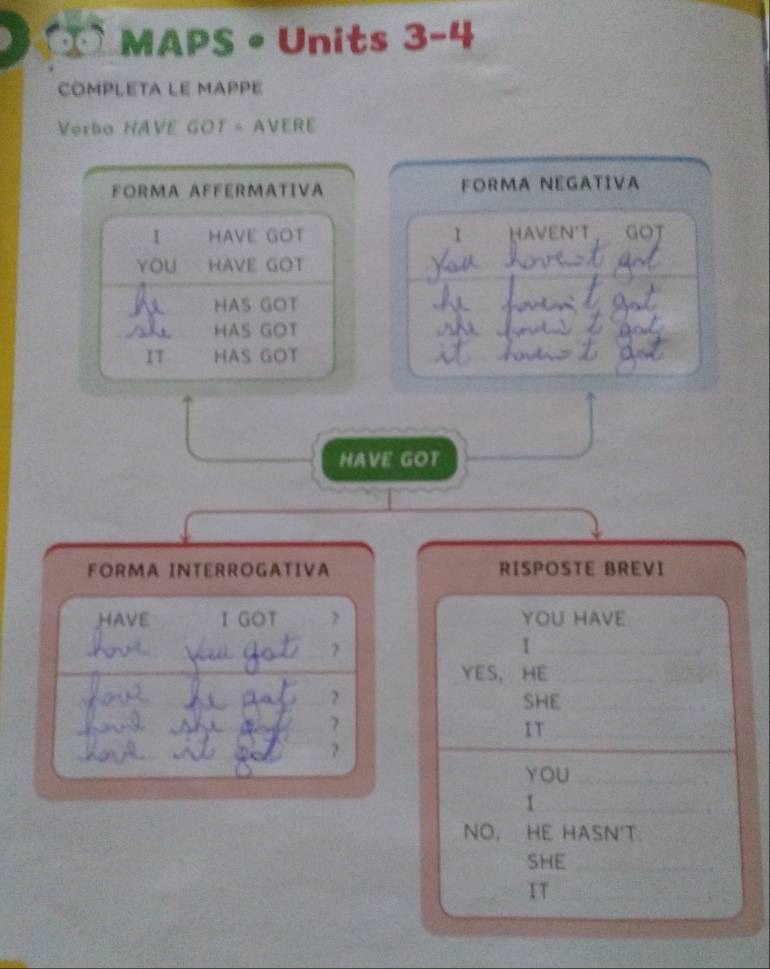 MAPS • Units 3-4
COMPLETA LE MAPPE
Verbo HAVE GOT = AVERE
FORMA AFFERMATIVA
I HAVE GOT
YOU HAVE GOT
he HAS GOT
she HAS GOT
IT HAS GOT
FORMA NEGATIVA
I HAVEN'T GOT
You haven't got
he haven't got
she haven't got
it haven't got
HAVE GOT
FORMA INTERROGATIVA
HAVE I GOT ?
have you got ?
have he got ?
have she got ?
have it got ?
RISPOSTE BREVI
YOU HAVE.
I
YES, HE
SHE
IT
YOU
I
NO, HE HASN'T.
SHE
IT